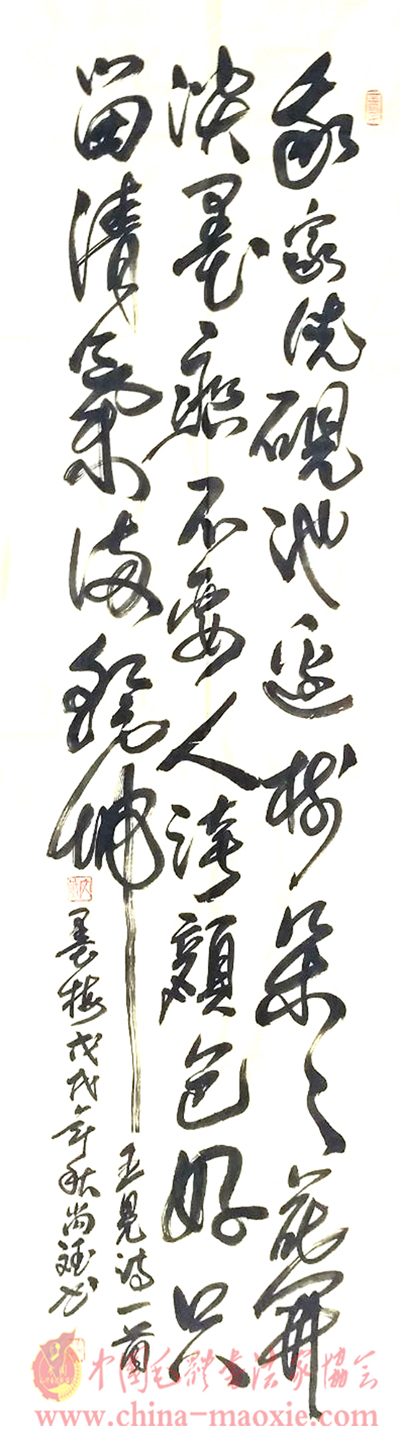 我家洗砚池边树朵朵花开
淡墨痕不要人誇颜色好只
留清氣满乾坤
王冕诗一首
墨梅戊戌年秋尚
中国毛體书法家協会
www.china-maoxie.com